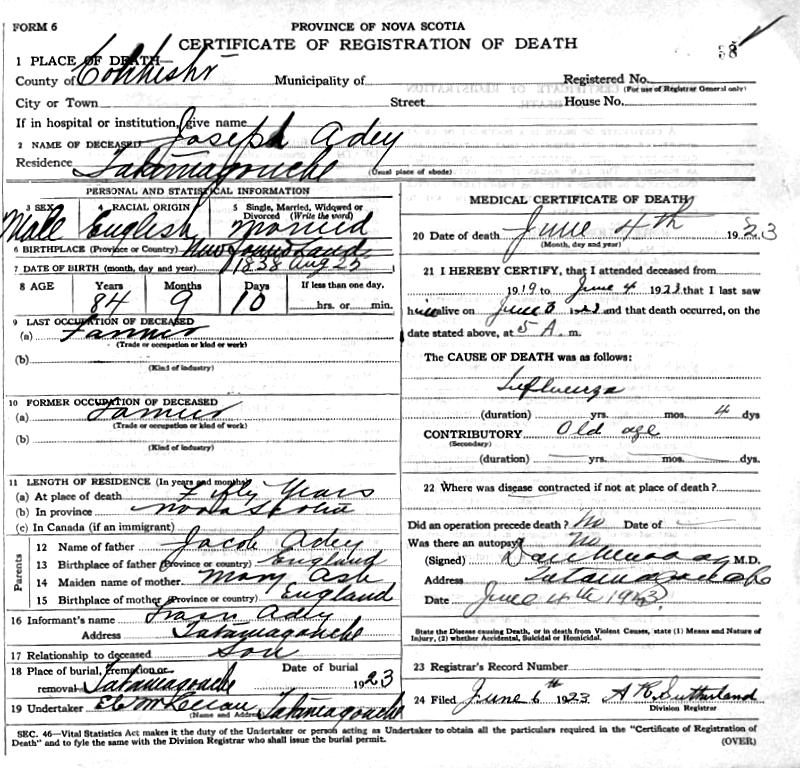 FORM 6
PROVINCE OF NOVA SCOTIA
CERTIFICATE OF REGISTRATION OF DEATH
1 PLACE OF DEATH—
County of Colchester Municipality of Registered No.
(For use of Registrar General only)
City or Town Street House No.
If in hospital or institution, give name
2 NAME OF DECEASED Joseph Adey
Residence Tatamagouche
(Usual place of abode)
PERSONAL AND STATISTICAL INFORMATION
3 SEX 4 RACIAL ORIGIN 5 Single, Married, Widowed or Divorced (Write the word)
Male English Married
6 BIRTHPLACE (Province or Country) Newfoundland
7 DATE OF BIRTH (month, day and year) 1838 Aug 25
8 AGE Years Months Days If less than one day,
84 9 10 hrs. or min.
9 LAST OCCUPATION OF DECEASED
(a) Farmer
(Trade or occupation or kind of work)
(b)
(Kind of industry)
10 FORMER OCCUPATION OF DECEASED
(a) Farmer
(Trade or occupation or kind of work)
(b)
(Kind of industry)
11 LENGTH OF RESIDENCE (In years and months)
(a) At place of death Fifty Years
(b) In province Nova Scotia
(c) In Canada (if an immigrant)
Parents
12 Name of father Jacob Adey
13 Birthplace of father (Province or country) England
14 Maiden name of mother Mary Ash
15 Birthplace of mother (Province or country) England
16 Informant's name Adey
Address Tatamagouche
17 Relationship to deceased Son
18 Place of burial, cremation or removal Tatamagouche Date of burial 1923
19 Undertaker
(Name and Address) Tatamagouche
MEDICAL CERTIFICATE OF DEATH
20 Date of death June 4th 1923
(Month, day and year)
21 I HEREBY CERTIFY, that I attended deceased from
1919 to June 4 1923 that I last saw
him alive on June 3 1923 and that death occurred, on the
date stated above, at 5 A. m.
The CAUSE OF DEATH was as follows:
Influenza
(duration) yrs. mos. 4 dys
CONTRIBUTORY Old age
(Secondary)
(duration) yrs. mos. dys.
22 Where was disease contracted if not at place of death?
Did an operation precede death? No Date of
Was there an autopsy? No
(Signed) Dan Murray M.D.
Address Tatamagouche
Date June 4th 1923
State the Disease causing Death, or in death from Violent Causes, state (1) Means and Nature of
Injury, (2) whether Accidental, Suicidal or Homicidal.
23 Registrar's Record Number
24 Filed June 6th 1923 A R Sutherland
Division Registrar
SEC. 46—Vital Statistics Act makes it the duty of the Undertaker or person acting as Undertaker to obtain all the particulars required in the "Certificate of Registration of
Death" and to fyle the same with the Division Registrar who shall issue the burial permit. (OVER)